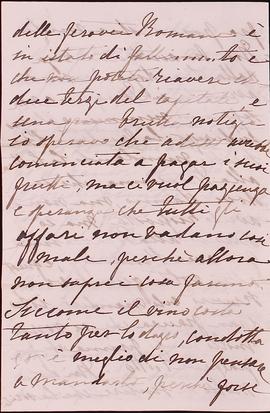 delle ferovie Romane è
in istato di fallimento e
che non potrò riavere
due terzi del capitale, e
senza frutti notizie
io speravo che avesse
cominciata a pagar i suoi
frutti, ma ci vuol pazienza
e speranza che tutti gli
affari non vadano così
male, perchè allora
non saprei cosa faremo.
Siccome il vino costa
tanto per lo dazio, condotta
è meglio di non pensare
a mandarlo, forse